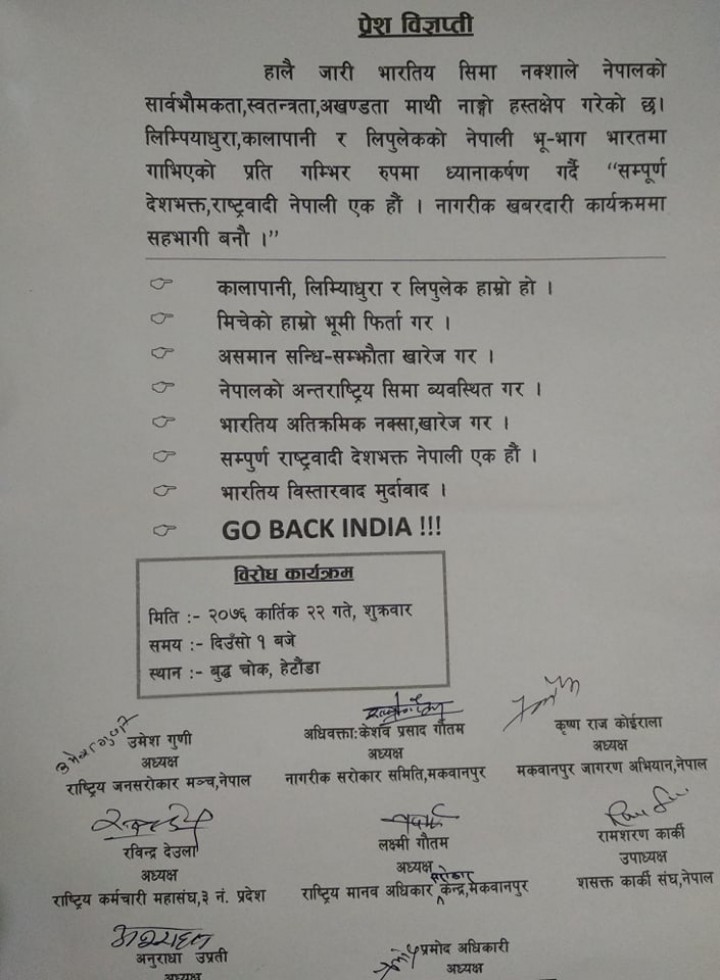 प्रेश विज्ञप्ती
हालै जारी भारतिय सिमा नक्शाले नेपालको
सार्वभौमकता,स्वतन्त्रता,अखण्डता माथी नाङ्गो हस्तक्षेप गरेको छ।
लिम्पियाधुरा,कालापानी र लिपुलेकको नेपाली भू-भाग भारतमा
गाभिएको प्रति गम्भिर रुपमा ध्यानाकर्षण गर्दै "सम्पूर्ण
देशभक्त,राष्ट्रवादी नेपाली एक हौं । नागरीक खबरदारी कार्यक्रममा
सहभागी बनौ ।"
कालापानी, लिम्यिाधुरा र लिपुलेक हाम्रो हो ।
मिचेको हाम्रो भूमी फिर्ता गर ।
असमान सन्धि-सम्झौता खारेज गर ।
नेपालको अन्तराष्ट्रिय सिमा व्यवस्थित गर ।
भारतिय अतिक्रमिक नक्सा,खारेज गर ।
सम्पुर्ण राष्ट्रवादी देशभक्त नेपाली एक हौं ।
भारतिय विस्तारवाद मुर्दावाद ।
GO BACK INDIA !!!
विरोध कार्यक्रम
मिति :- २०७६ कार्तिक २२ गते, शुक्रवार
समय :- दिउँसो १ बजे
स्थान :- बुद्ध चोक, हेटौंडा
उमेश गुणी अधिवक्ता:केशव प्रसाद गौतम कृष्ण राज कोईराला
अध्यक्ष अध्यक्ष अध्यक्ष
राष्ट्रिय जनसरोकार मञ्च,नेपाल नागरीक सरोकार समिति,मकवानपुर मकवानपुर जागरण अभियान,नेपाल
रविन्द्र देउला लक्ष्मी गौतम रामशरण कार्की
अध्यक्ष अध्यक्ष उपाध्यक्ष
राष्ट्रिय कर्मचारी महासंघ,३ नं. प्रदेश राष्ट्रिय मानव अधिकार सरोकार केन्द्र,मकवानपुर शसक्त कार्की संघ,नेपाल
अनुराधा उप्रती प्रमोद अधिकारी
अध्यक्ष अध्यक्ष